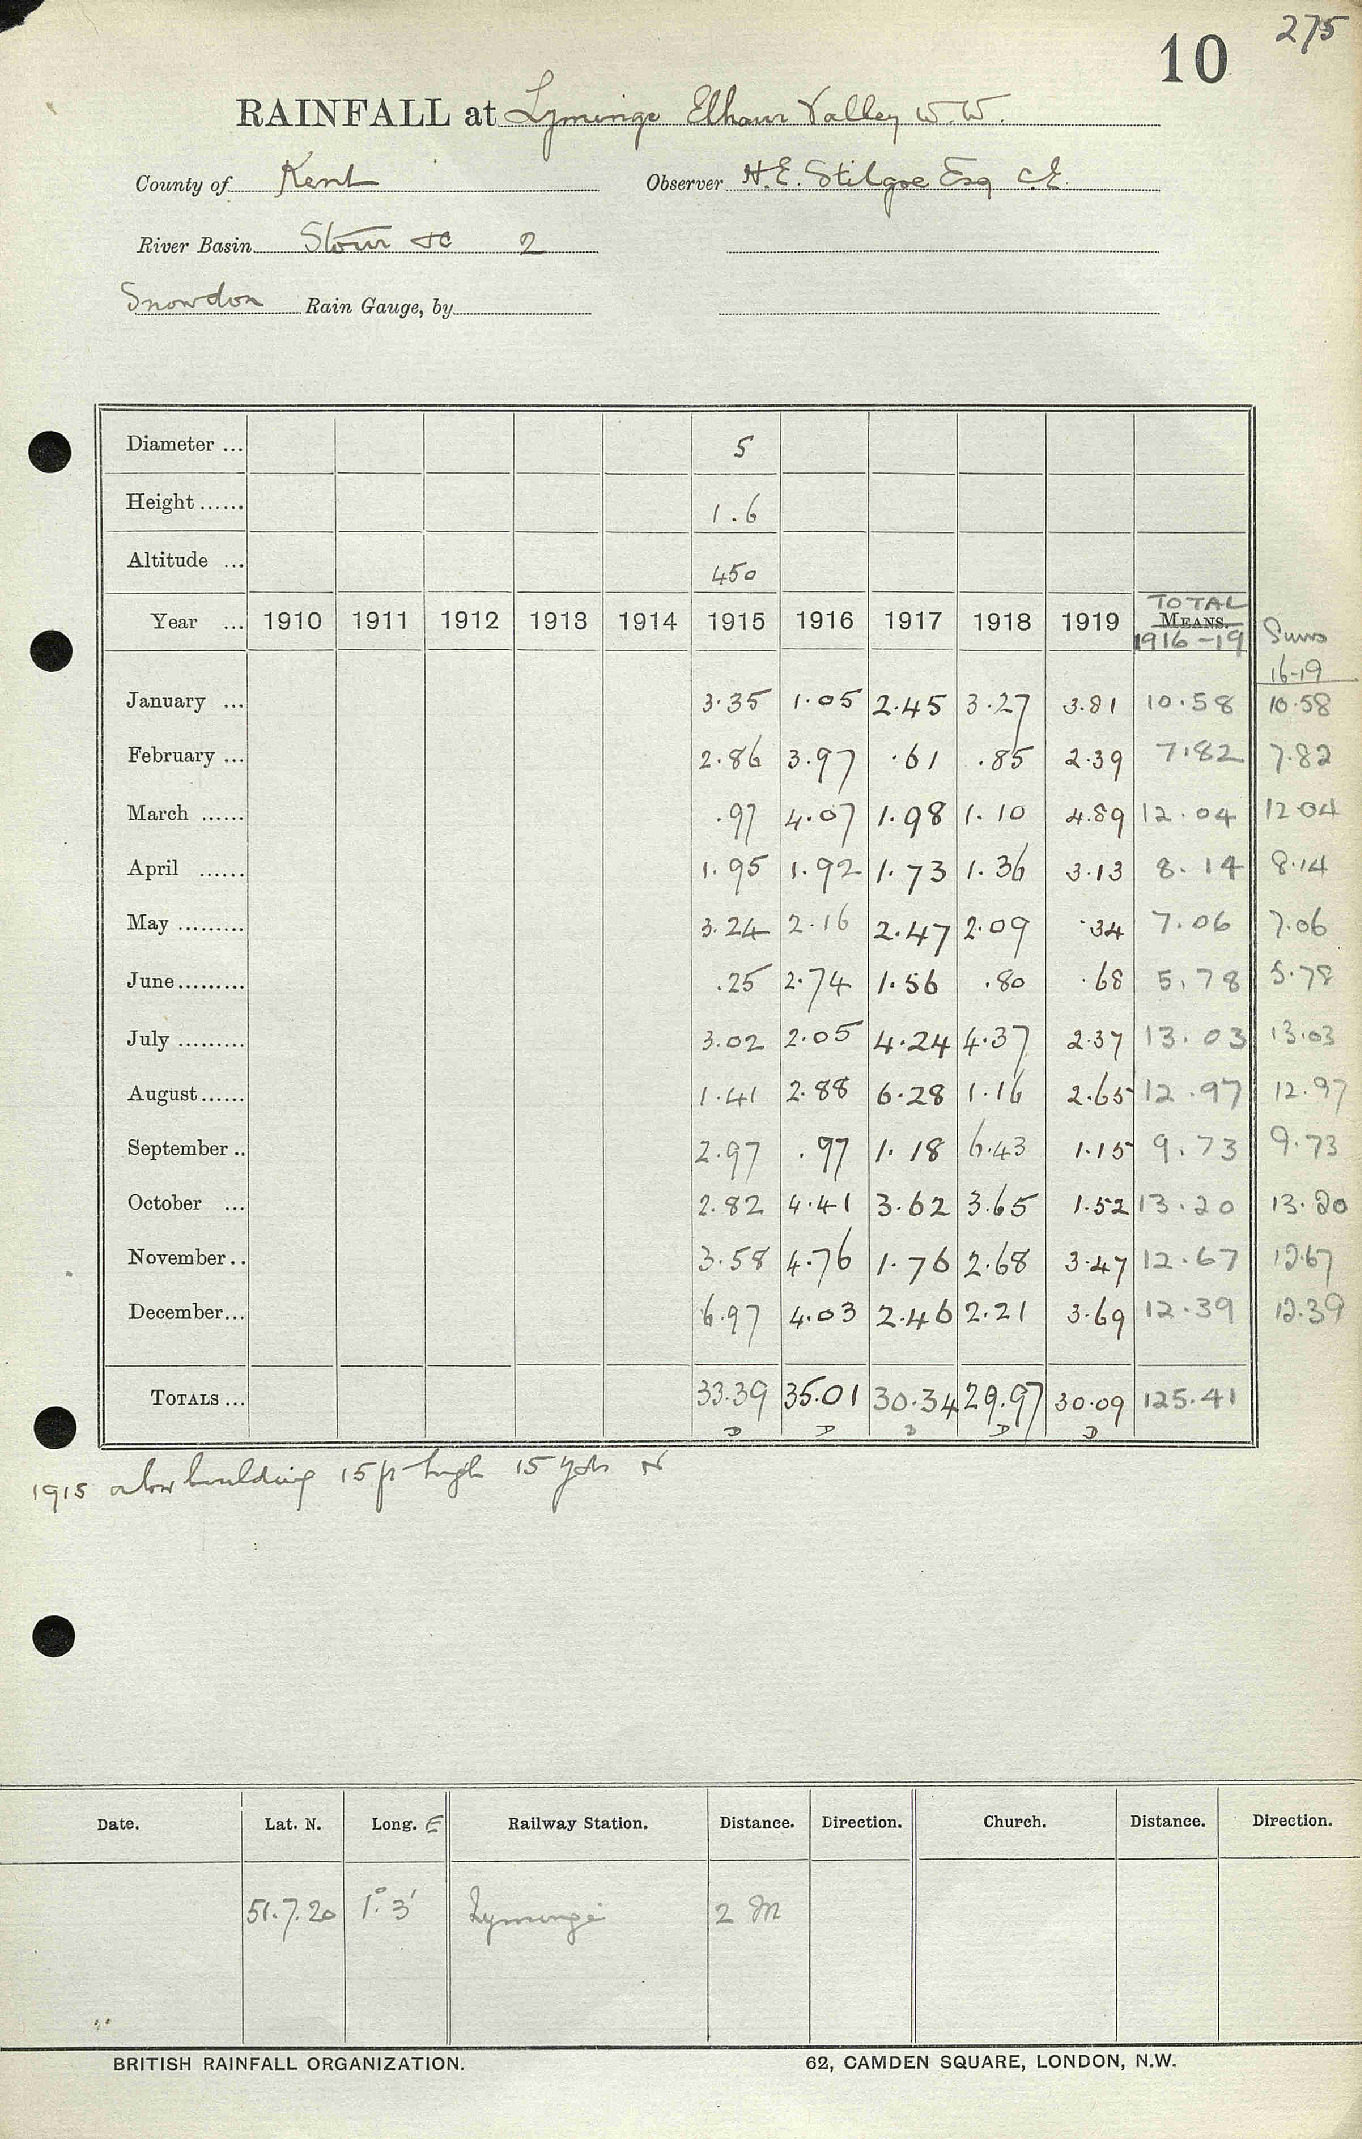 275
10
RAINFALL at Lyminge Elham Valley W.W.
County of Kent Observer H.E. Stilgoe Esq C.E.
River Basin Stour &c 2
Snowdon Rain Gauge, by
Diameter ... 5
Height ...... 1.6
Altitude ... 450
Year ... 1910 1911 1912 1913 1914 1915 1916 1917 1918 1919 TOTAL MEANS. 1916-19 Sums 16-19
January ... 3.35 1.05 2.45 3.27 3.81 10.58 10.58
February ... 2.86 3.97 .61 .85 2.39 7.82 7.82
March ...... .97 4.07 1.98 1.10 4.89 12.04 12.04
April ...... 1.95 1.92 1.73 1.36 3.13 8.14 8.14
May ......... 3.24 2.16 2.47 2.09 .34 7.06 7.06
June ......... .25 2.74 1.56 .80 .68 5.78 5.78
July ......... 3.02 2.05 4.24 4.37 2.37 13.03 13.03
August ...... 1.41 2.88 6.28 1.16 2.65 12.97 12.97
September .. 2.97 .97 1.18 6.43 1.15 9.73 9.73
October ... 2.82 4.41 3.62 3.65 1.52 13.20 13.20
November .. 3.58 4.76 1.76 2.68 3.47 12.67 12.67
December ... 6.97 4.03 2.46 2.21 3.69 12.39 12.39
TOTALS ... 33.39 35.01 30.34 29.97 30.09 125.41
D D D D D
1915 a low building 15 ft high 15 yds N
Date. Lat. N. Long. E Railway Station. Distance. Direction. Church. Distance. Direction.
51.7.20 1° 3' Lyminge 2 M
BRITISH RAINFALL ORGANIZATION. 62, CAMDEN SQUARE, LONDON, N.W.